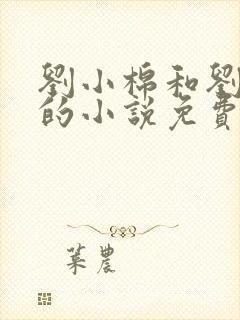 劉小棉和劉
的小說免費
葉農